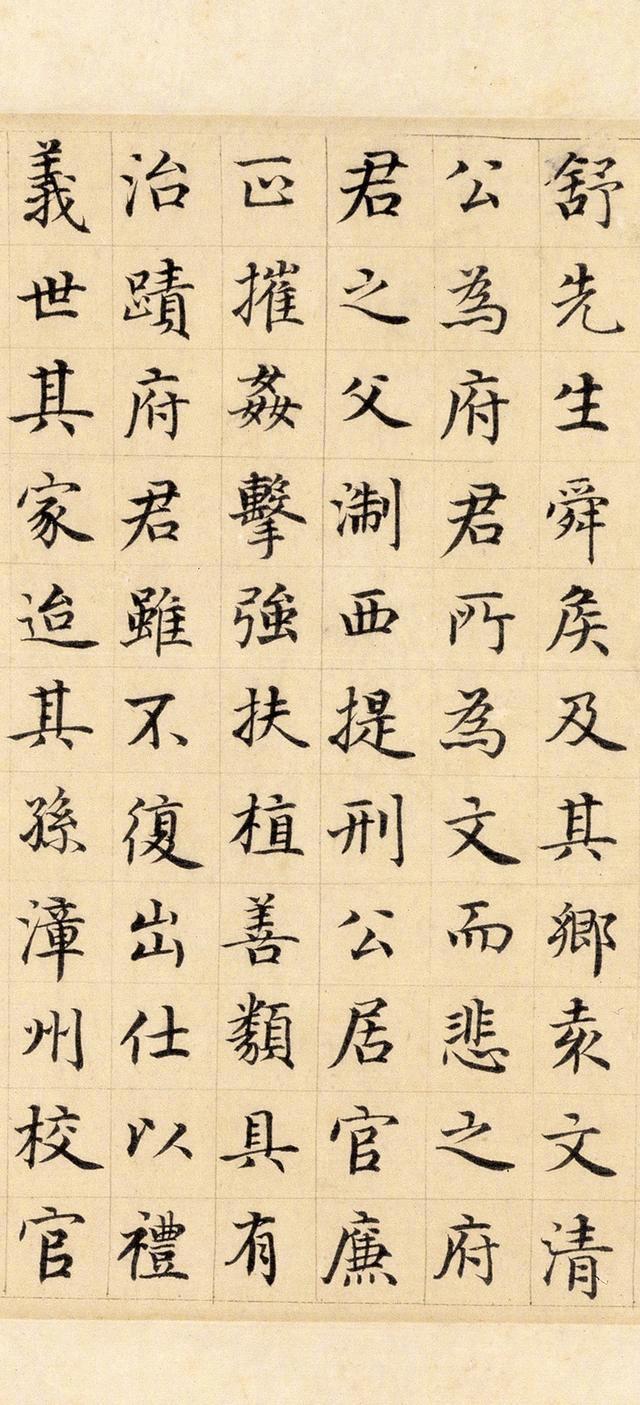 舒先生舜矦及其鄉袁文清
公為府君所為文而悲之府
君之父淛西提刑公居官廉
正摧姦擊強扶植善類具有
治蹟府君雖不復出仕以禮
義世其家迨其孫漳州校官